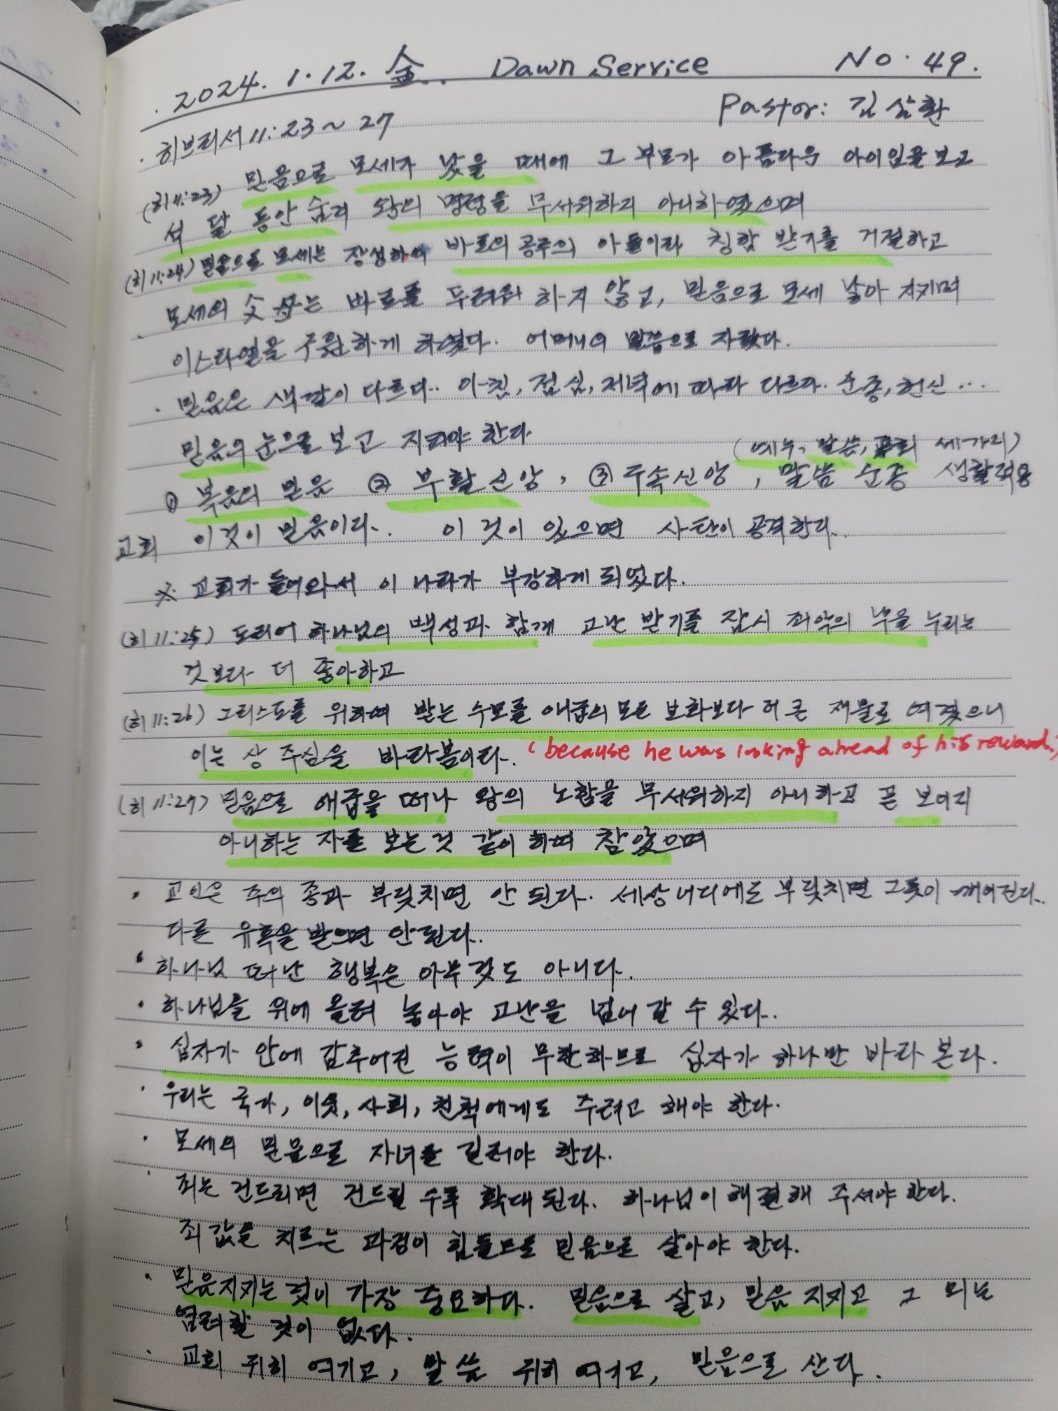 2024. 1. 12. 金. Dawn Service No. 49.
Pastor: 김삼환
· 히브리서 11:23~27
(히 11:23) 믿음으로 모세가 났을 때에 그 부모가 아름다운 아이임을 보고
석 달 동안 숨겨 왕의 명령을 무서워하지 아니하였으며
(히 11:24) 믿음으로 모세는 장성하여 바로의 공주의 아들이라 칭함 받기를 거절하고
· 모세의 父母는 바로를 두려워 하지 않고, 믿음으로 모세 낳아 지키며
이스라엘을 구원하게 하였다. 어머니의 믿음으로 자랐다.
· 믿음은 색깔이 다르다.. 아침, 점심, 저녁에 따라 다르다. 순종, 헌신 ...
믿음의 눈으로 보고 지켜야 한다
(예수, 말씀, 교회 세가지)
① 복음의 믿음 ② 부활신앙, ③ 구속신앙, 말씀 순종 생활적용
교회 이것이 믿음이다. 이 것이 있으면 사탄이 공격한다.
※ 교회가 들어와서 이 나라가 부강하게 되었다.
(히 11:25) 도리어 하나님의 백성과 함께 고난 받기를 잠시 죄악의 낙을 누리는
것보다 더 좋아하고
(히 11:26) 그리스도를 위하여 받는 수모를 애굽의 모든 보화보다 더 큰 재물로 여겼으니
이는 상 주심을 바라봄이라. (because he was looking ahead of his reward.)
(히 11:27) 믿음으로 애굽을 떠나 왕의 노함을 무서워하지 아니하고 곧 보이지
아니하는 자를 보는 것 같이 하여 참았으며
· 교인은 주의 종과 부딪치면 안 된다. 세상 어디에도 부딪치면 그릇이 깨어진다.
다른 유혹을 받으면 안된다.
· 하나님 떠난 행복은 아무것도 아니다.
· 하나님을 위에 올려 놓아야 고난을 넘어 갈 수 있다.
· 십자가 안에 감추어진 능력이 무한하므로 십자가 하나만 바라 본다.
· 우리는 국가, 이웃, 사회, 친척에게도 주려고 해야 한다.
· 모세의 믿음으로 자녀를 길러야 한다.
· 죄는 건드리면 건드릴 수록 확대 된다. 하나님이 해결해 주셔야 한다.
죄 값을 치르는 과정이 힘들므로 믿음으로 살아야 한다.
· 믿음지키는 것이 가장 중요하다. 믿음으로 살고, 믿음 지키고 그 외는
염려할 것이 없다.
· 교회 귀히 여기고, 말씀 귀히 여기고, 믿음으로 산다.